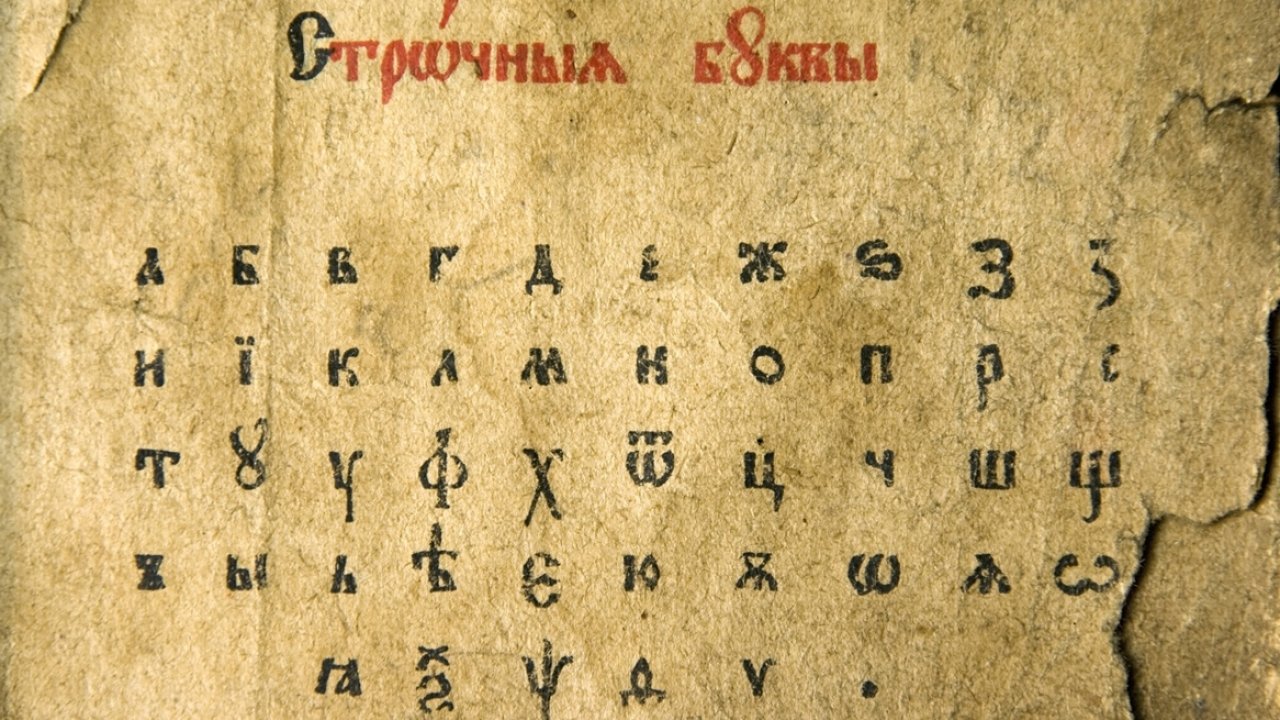 Стрѡ́чныѧ бꙋквы
а б в г д е ж ѕ з ꙁ
и ї к л м н о п р с
т ꙋ у ф х ѿ ц ч ш щ
ъ ы ь ѣ є ю ѫ ѡ ѧ ѡ
ꙗ ѯ ѱ д ѵ .